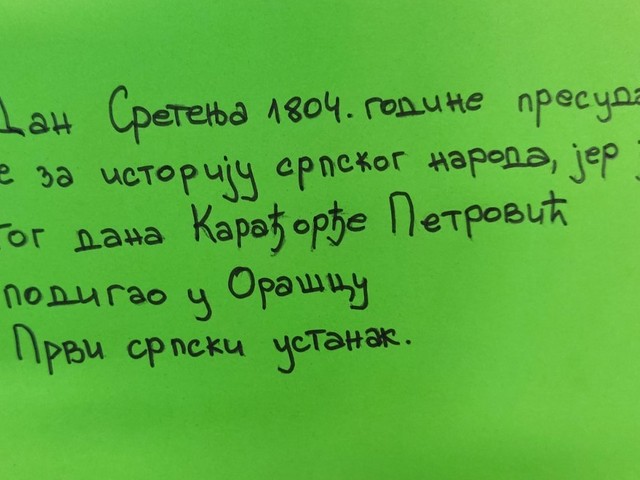 Дан Сретења 1804. године пресуда
е за историју српског народа, јер ј
тог дана Карађорђе Петровић
подигао у Орашцу
Први српски устанак.